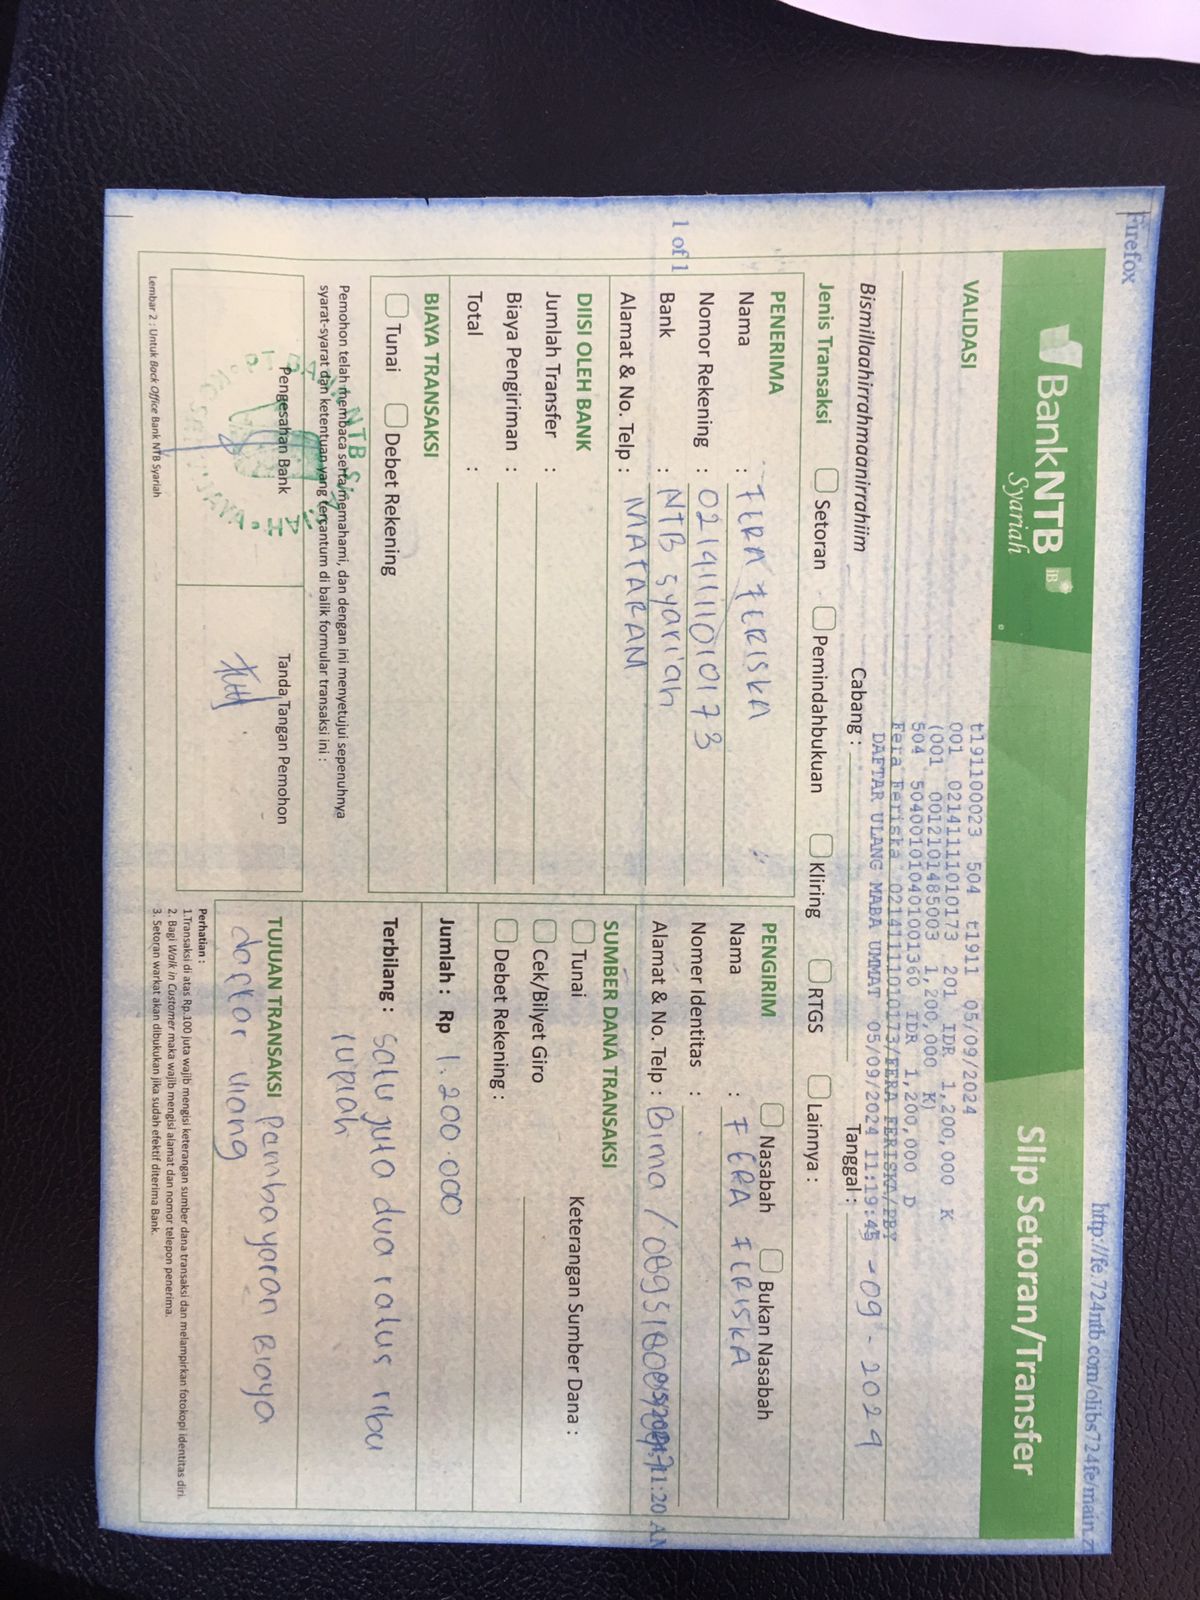 Firefox
http://fe.724ntb.com/olibs724fe/main.z
BankNTB
Syariah
iB
Slip Setoran/Transfer
VALIDASI
t191100023 504 t1911 05/09/2024
001 0214111101​0173 201 IDR 1,200,000 K
(001 001210148​5003 1,200,000 K)
504 5040010104​01001360 IDR 1,200,000 D
Fera Feriska 0214111101​0173/FERA FERISKA/PBY
DAFTAR ULANG MABA UMMAT 05/09/2024 11:19:45
Bismillaahirrahmaanirrahiim
Cabang :
Tanggal : -09-2024
Jenis Transaksi
Setoran
Pemindahbukuan
Kliring
RTGS
Lainnya :
PENERIMA
Nama : FERA FERISKA
Nomor Rekening : 02141111010173
Bank : NTB syari'ah
Alamat & No. Telp : MATARAM
1 of 1
PENGIRIM
Nasabah
Bukan Nasabah
Nama : FERA FERISKA
Nomer Identitas :
Alamat & No. Telp : Bima /
11:20 AM
DIISI OLEH BANK
Jumlah Transfer :
Biaya Pengiriman :
Total :
SUMBER DANA TRANSAKSI
Tunai
Cek/Bilyet Giro
Debet Rekening :
Keterangan Sumber Dana :
BIAYA TRANSAKSI
Tunai
Debet Rekening
Jumlah : Rp 1.200.000
Terbilang : satu juta dua ratus ribu
rupiah
Pemohon telah membaca serta memahami, dan dengan ini menyetujui sepenuhnya
syarat-syarat dan ketentuan yang tercantum di balik formular transaksi ini :
Pengesahan Bank
Tanda Tangan Pemohon
TUJUAN TRANSAKSI Pambayaran Biaya
daftar ulang
Perhatian :
1.Transaksi di atas Rp.100 juta wajib mengisi keterangan sumber dana transaksi dan melampirkan fotokopi identitas diri.
2. Bagi Walk in Customer maka wajib mengisi alamat dan nomor telepon penerima.
3. Setoran warkat akan dibukukan jika sudah efektif diterima Bank.
Lembar 2 : Untuk Back Office Bank NTB Syariah